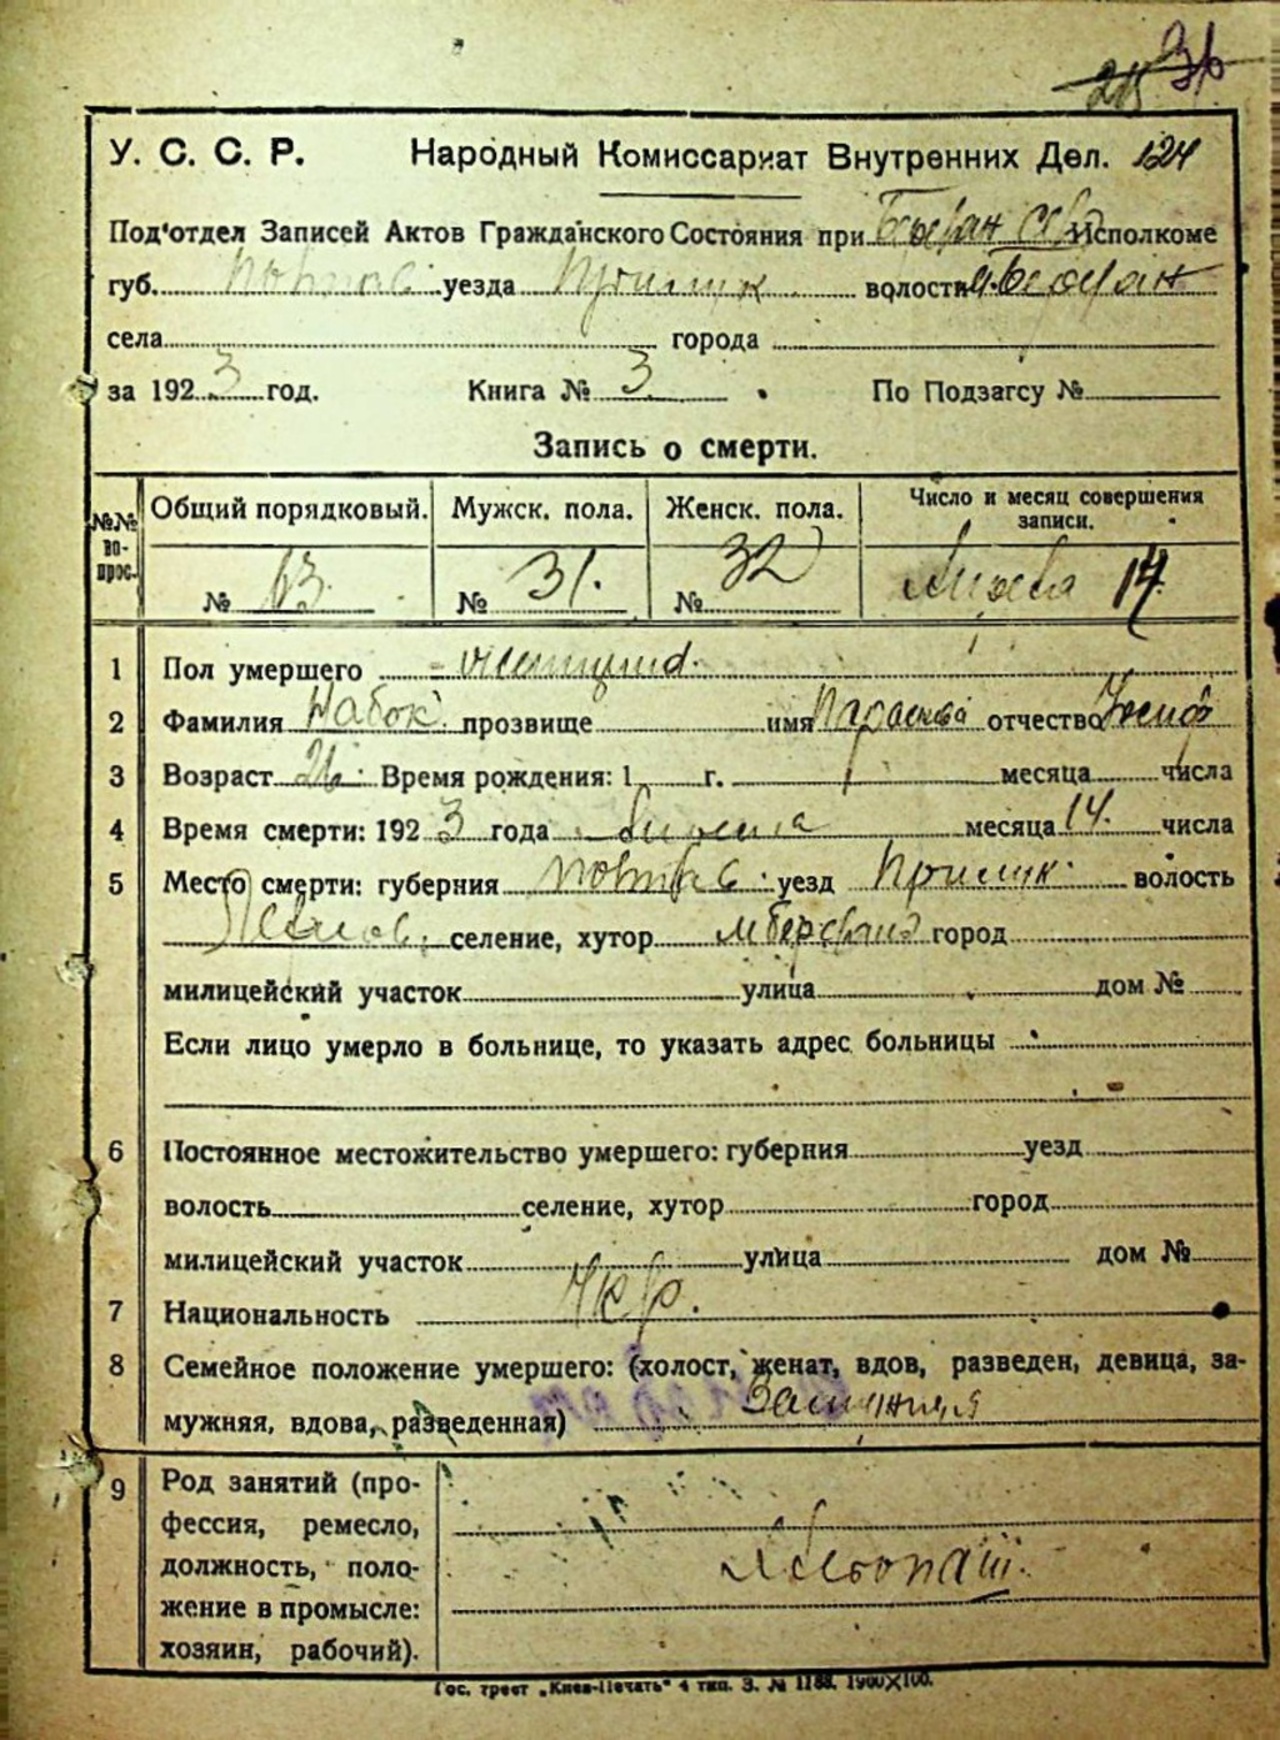 36
У. С. С. Р. Народный Комиссариат Внутренних Дел. 124
Под'отдел Записей Актов Гражданского Состояния при Исполкоме
губ. Полтав уезда Прилук волости
села города
за 1923 год. Книга № 3 По Подзагсу №
Запись о смерти.
№№ вопрос. Общий порядковый. Мужск. пола. Женск. пола. Число и месяц совершения записи.
№ 63. № 31. № 32 14
1 Пол умершего
2 Фамилия Набок прозвище имя Параскева отчество Иосиф
3 Возраст Время рождения: 1 г. месяца числа
4 Время смерти: 1923 года месяца 14. числа
5 Место смерти: губерния Полтав уезд Прилук. волость
селение, хутор город
милицейский участок улица дом №
Если лицо умерло в больнице, то указать адрес больницы
6 Постоянное местожительство умершего: губерния уезд
волость селение, хутор город
милицейский участок улица дом №
7 Национальность Укр.
8 Семейное положение умершего: (холост, женат, вдов, разведен, девица, за-
мужняя, вдова, разведенная) Замужняя
9 Род занятий (про-
фессия, ремесло,
должность, поло-
жение в промысле:
хозяин, рабочий).
Гос. трест „Киев-Печать" 4 тип. З. № 1188. 1900X100.